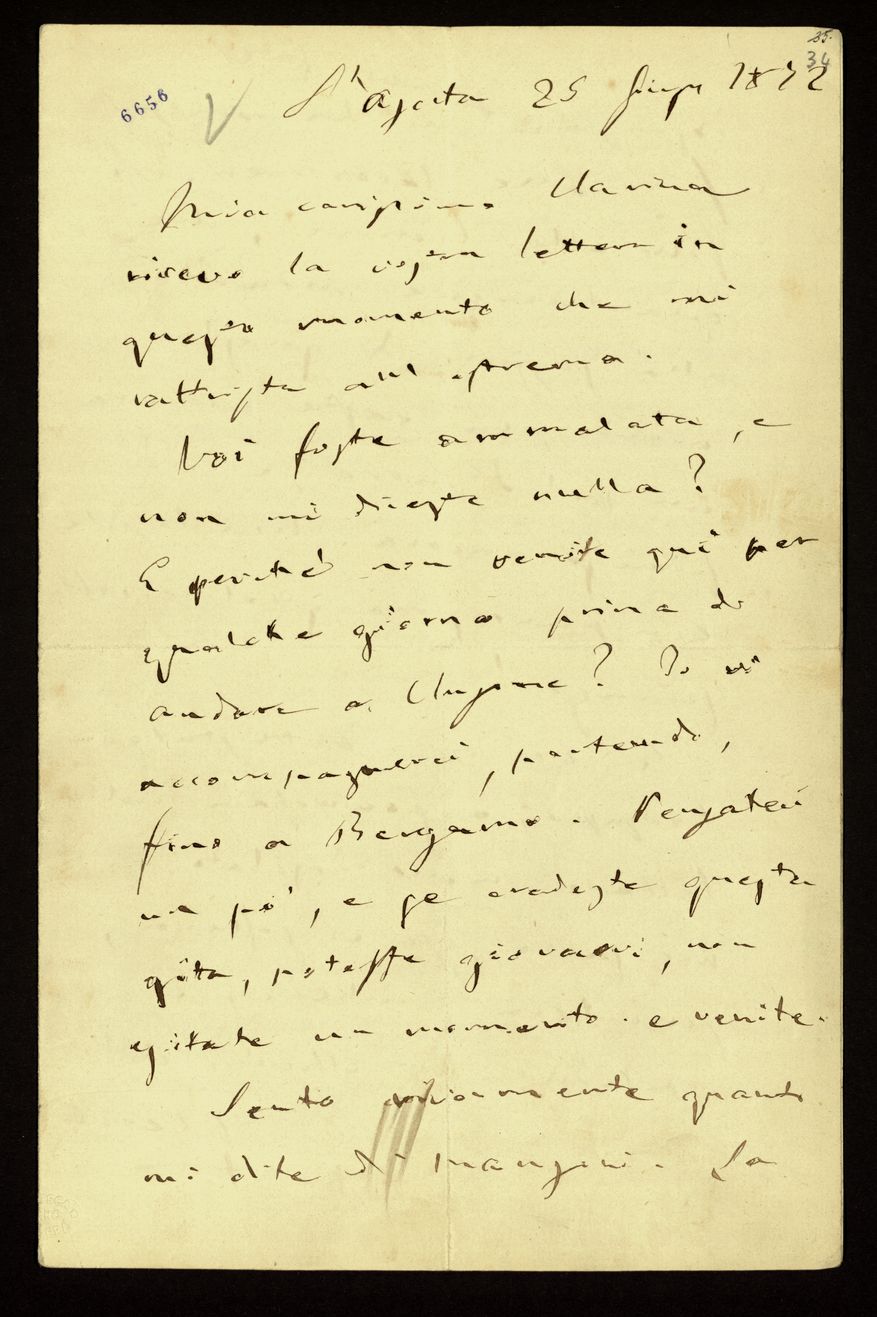 35.
34
6656
St Agata 25 Giug 1872
Mia carissima Clarina
ricevo la vostra lettera in
questo momento che mi
rattrista all'estremo.
Voi foste ammalata, e
non mi diceste nulla?
E perché non venite qui per
qualche giorno prima di
andare a Clusone? Io vi
accompagnerei, partendo,
fino a Bergamo. Pensateci
un pò, e se credeste questa
gita, potesse giovarvi, non
esitate un momento. e venite.
Sento vivamente quanto
mi dite di Manzoni. Lo